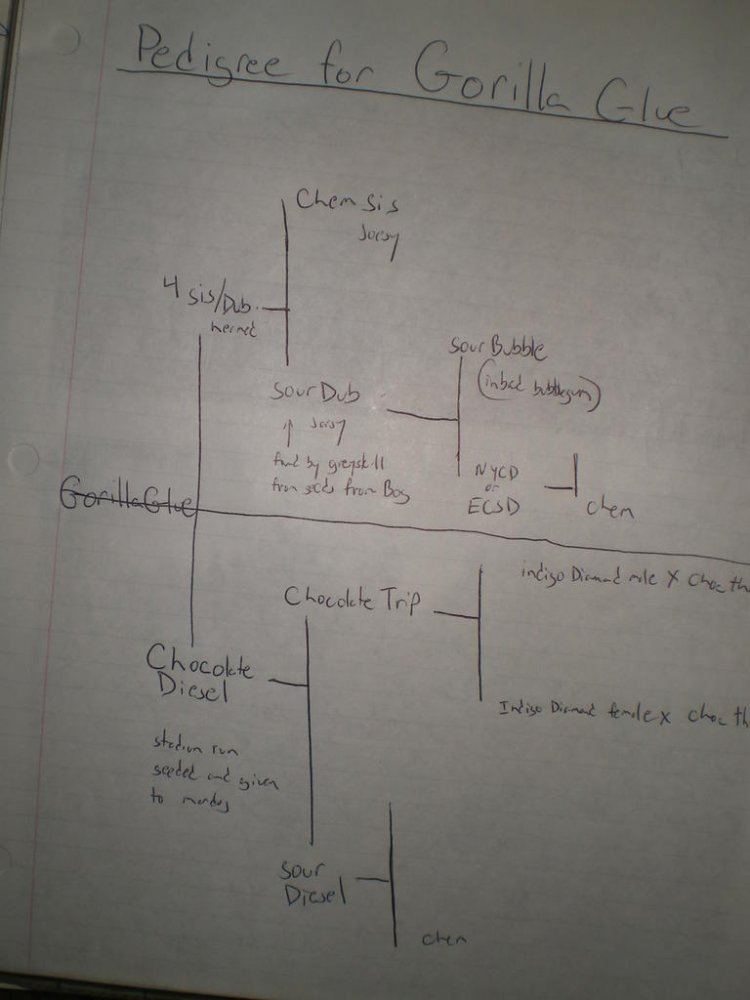 Pedigree for Gorilla Glue
Chem sis
Joesy
4 sis/Dub
hermed
Sour Bubble
(inbred bubblegum)
Sour Dub
Joesy
found by greyskill
from seeds from Bog
NYCD
or
ECSD
chem
Gorilla Glue
indigo Diamond male X Choc th
Chocolate Trip
Chocolate
Diesel
Indigo Diamond female X choc th
stadium run
seeded and given
to
Sour
Diesel
chem